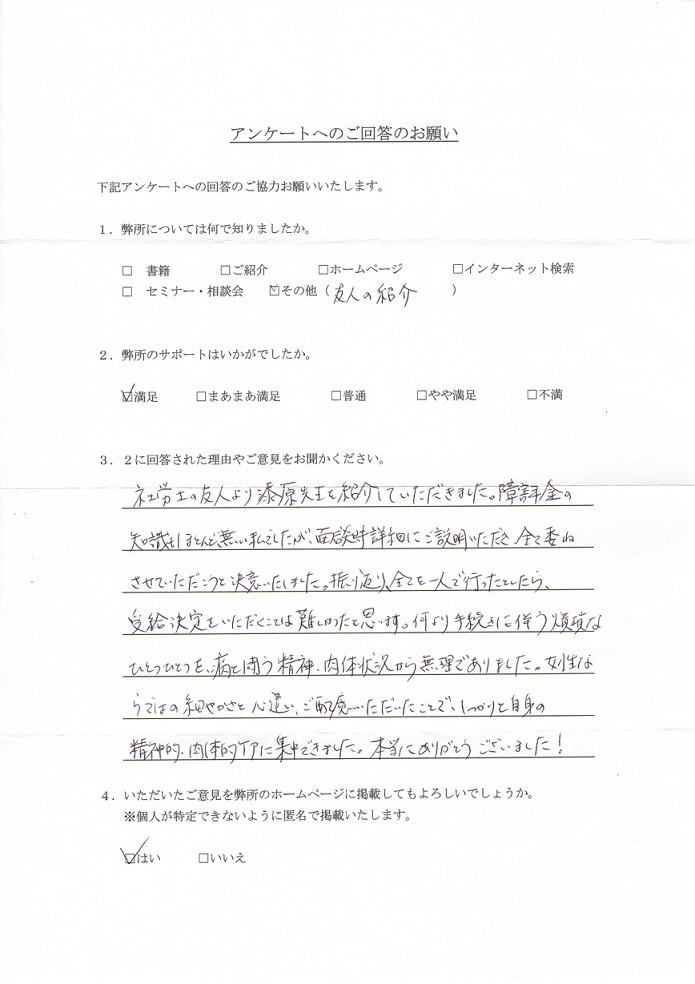 アンケートへのご回答のお願い
下記アンケートへの回答のご協力お願いいたします。
１．弊所については何で知りましたか。
□　書籍　□ご紹介　□ホームページ　□インターネット検索
□　セミナー・相談会　☑その他（友人の紹介　）
２．弊所のサポートはいかがでしたか。
☑満足　□まあまあ満足　□普通　□やや満足　□不満
３．２に回答された理由やご意見をお聞かください。
社労士の友人より漆原先生を紹介していただきました。障害年金の
知識もほとんど無い私でしたが、面談時詳細にご説明いただき 全て委ね
させていただこうと決意いたしました。振り返り、全てを一人で行ったとしたら、
受給決定をいただくことは難しかったと思います。何より手続きに伴う煩瑣な
ひとつひとつを、病と闘う精神、肉体状況から無理でありました。女性な
らではの細やかさと心遣い、ご配慮いただいたことで、しっかりと自身の
精神的、肉体的ケアに集中できました。本当にありがとうございました！
４．いただいたご意見を弊所のホームページに掲載してもよろしいでしょうか。
※個人が特定できないように匿名で掲載いたします。
☑はい　□いいえ